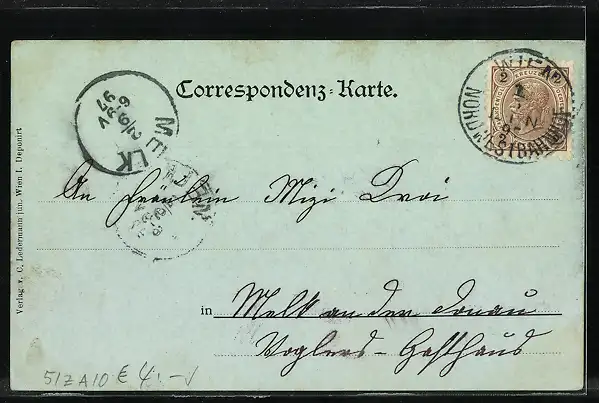 Correspondenz-Karte.
WIEN
NORDWESTBAHNHOF
2 KREUZER 2
MELK
2/6 97
An Fräulein Mizi Droi
in Melk an der Donau
Voglers-Gasthaus
Verlag v. C. Ledermann jun. Wien I. Deponirt
51ZA10 € 4.-